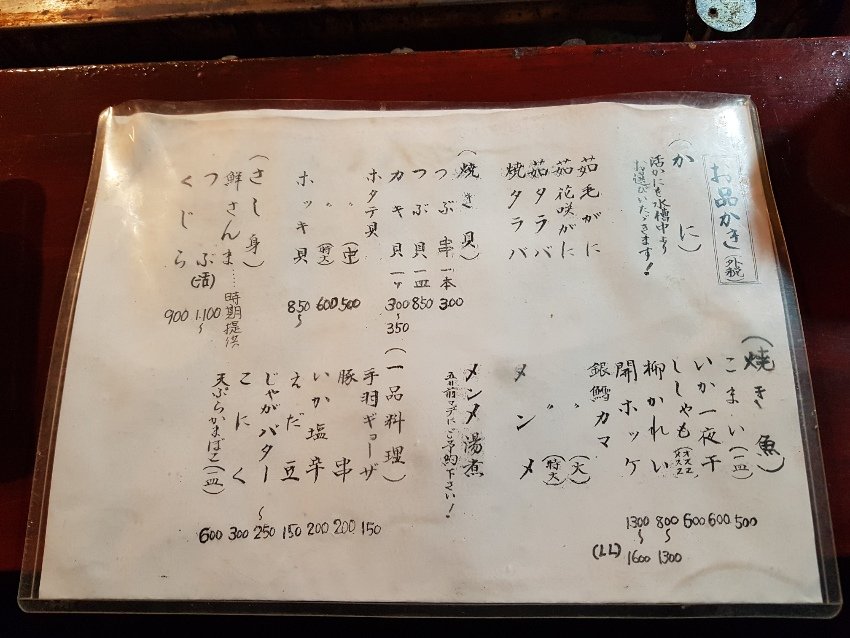 お品かき (外税)
(かに)
活かにを水槽中より
お選びいただきます!
茹毛がに
茹花咲がに
茹タラバ
焼タラバ
(焼き貝)
つぶ串一本 300
つぶ貝一皿 850
カキ貝一ヶ 300~350
ホタテ貝 (中) 500
〃 (特大) 600
ホッキ貝 850~
(さし身)
鮮さんま……時期提供
つぶ(活) 1.100~
くじら 900
(焼き魚)
こまい(一皿) 500
いか一夜干 600
ししゃも(オススメ) 500
柳かれい 800~1300
開ホッケ 1300~(LL)1600
銀鱈カマ
〃 (大)
〃 (特大)
メンメ
メンメ湯煮
五日前マデにご予約下さい!
(一品料理)
手羽ギョーザ 150
豚串 200
いか塩辛 200
えだ豆 150
じゃがバター~ 250
こにく 300
天ぷらかまぼこ(一皿) 600